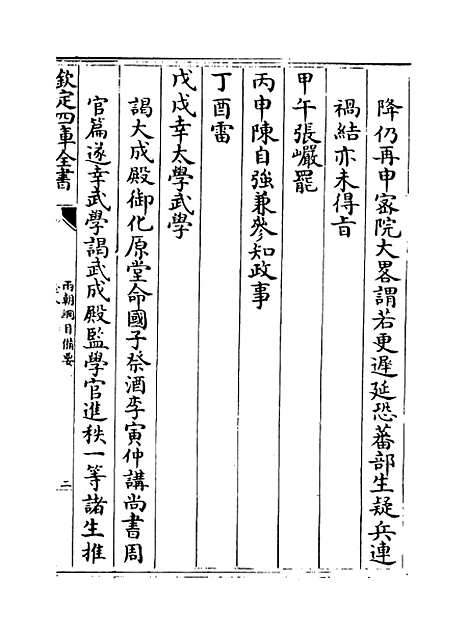 降仍再申宻院大畧謂若更遲延恐蕃部生疑兵連
禍結亦未得旨
甲午張巖罷
丙申陳自強兼參知政事
丁酉雷
戊戌幸太學武學
謁大成殿御化原堂命國子祭酒李寅仲講尚書周
官篇遂幸武學謁武成殿監學官進秩一等諸生推
欽定四庫全書
兩朝綱目備要
二